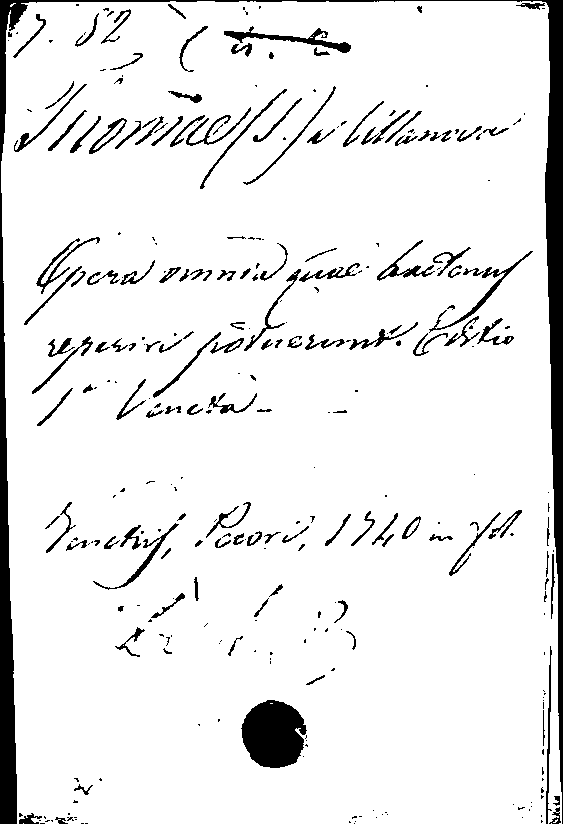 7. 52
Thomae (S.) a Villanova
Opera omnia quae hactenus
reperiri potuerunt. Editio
1a Veneta
Venetiis, Pecori, 1740 in fol.